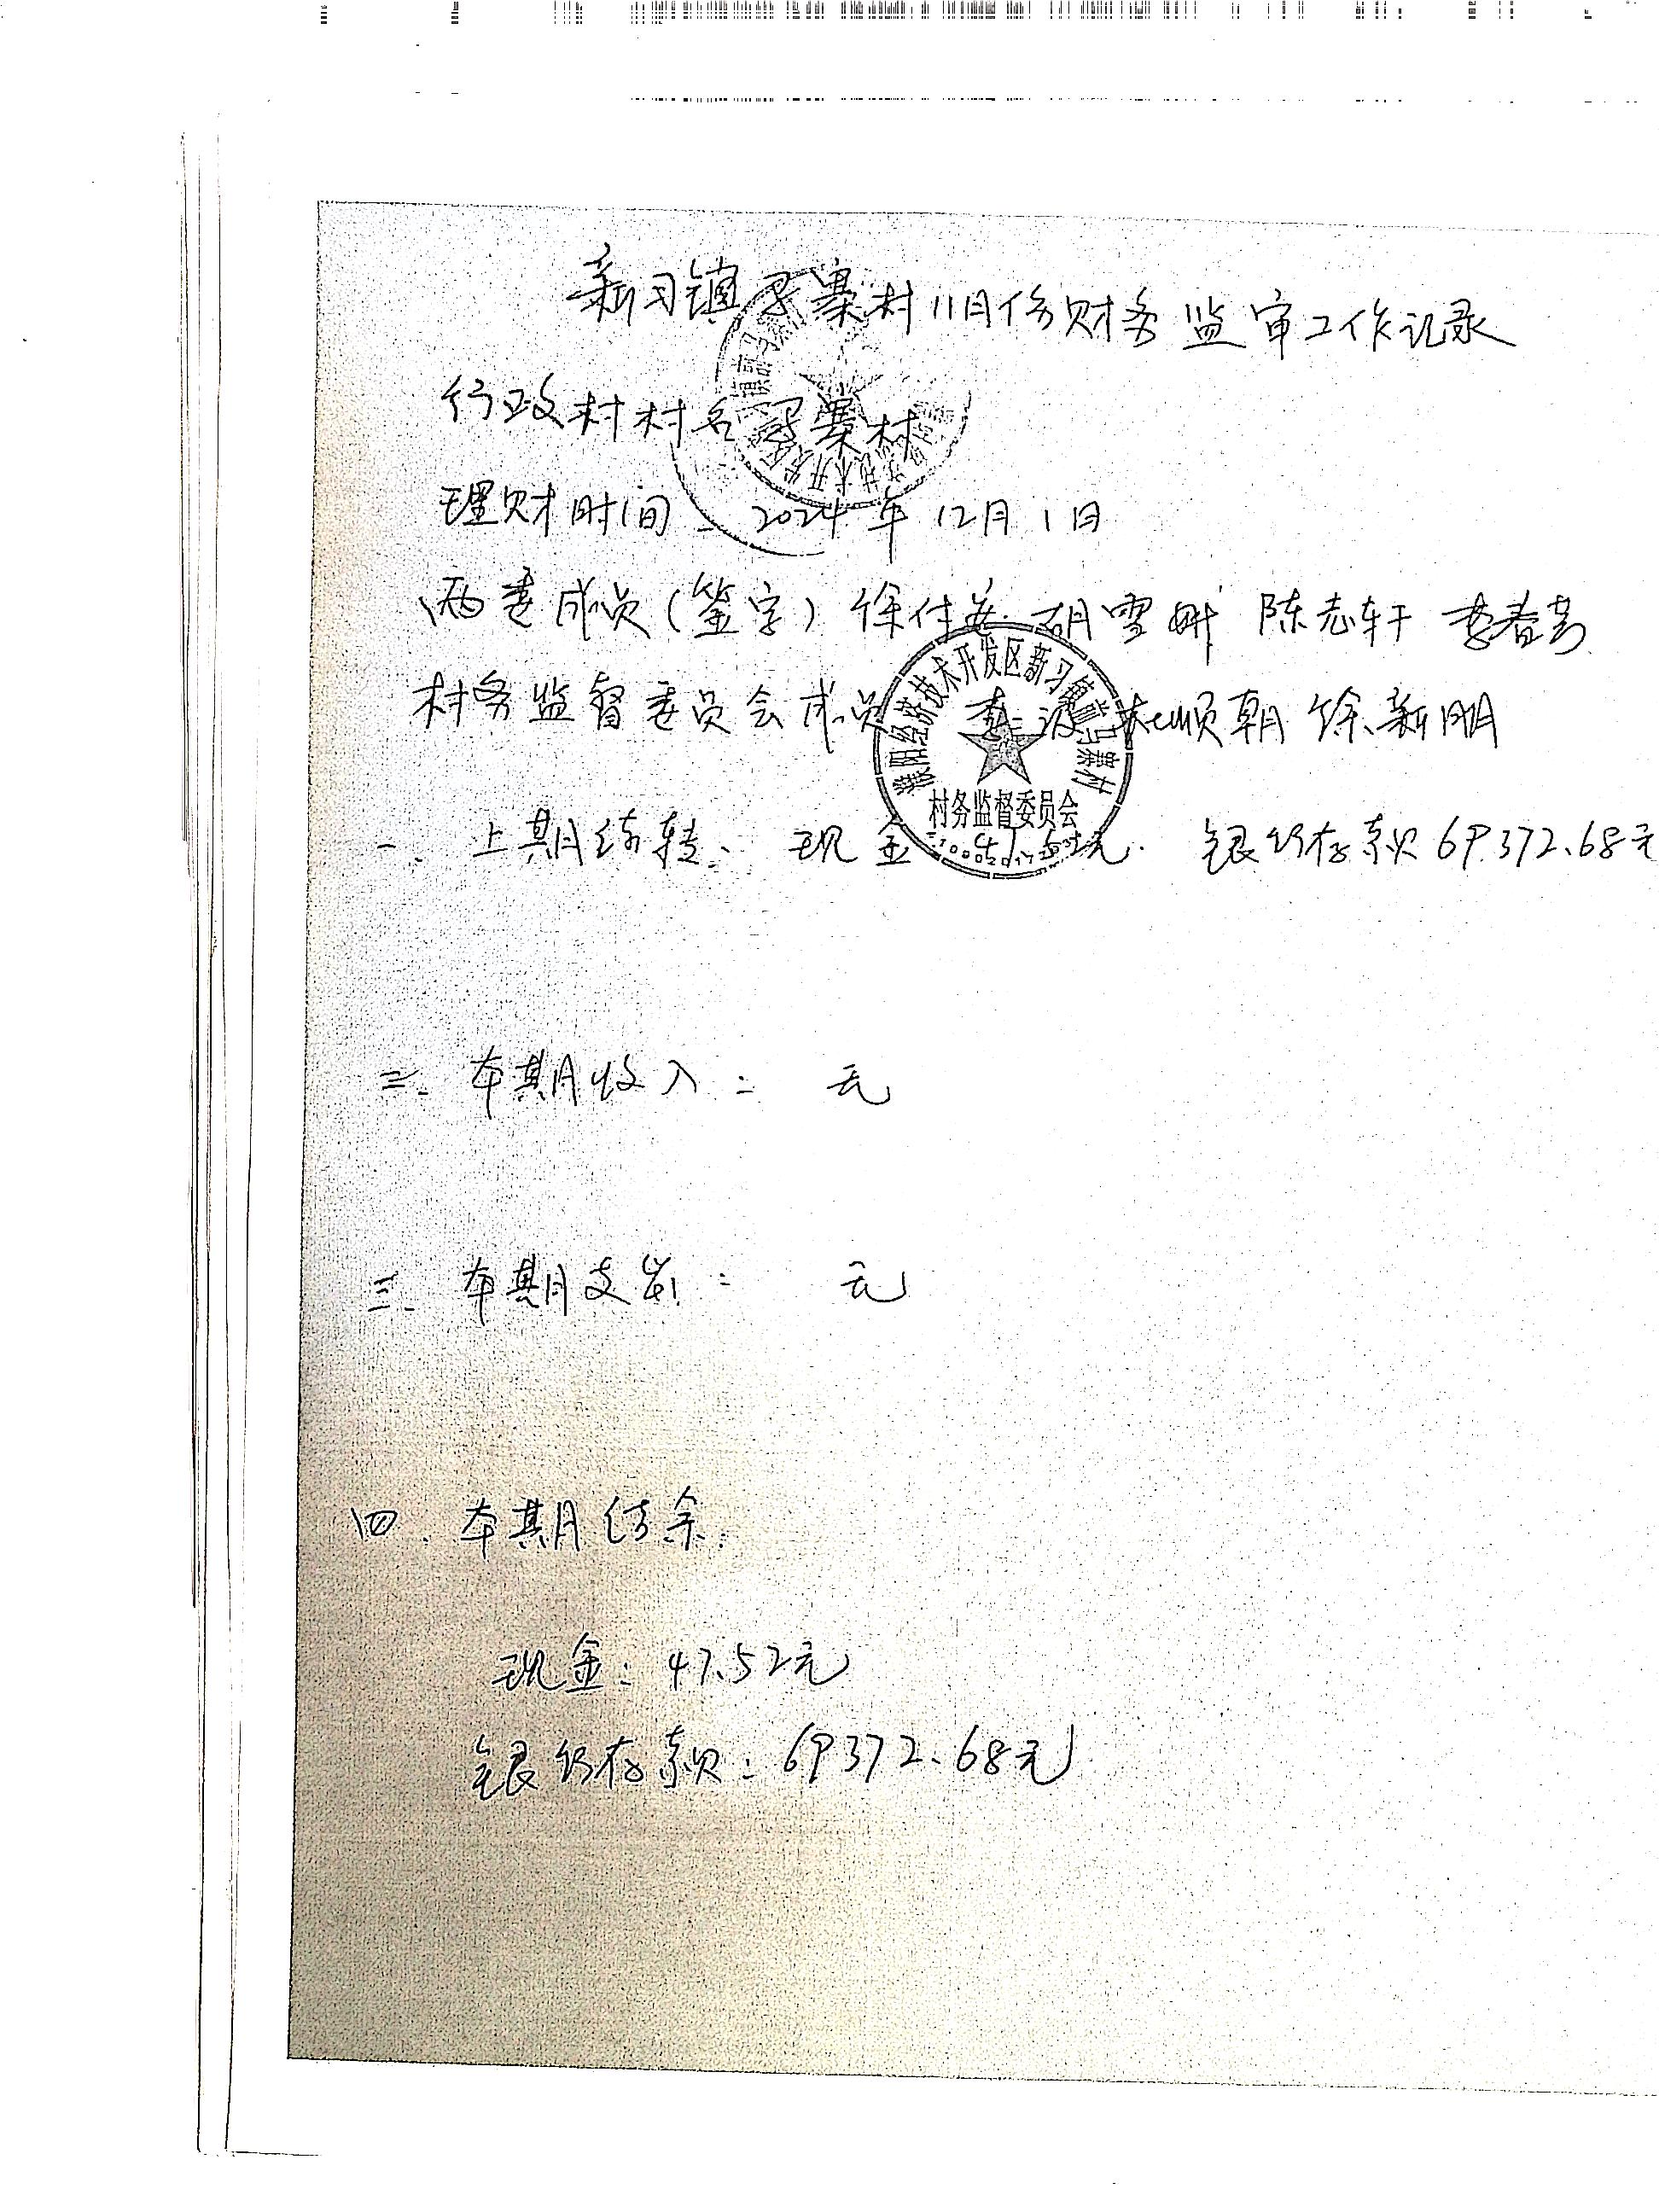 新习镇马寨村11月份财务监审工作记录
行政村村名 马寨村
理财时间: 2024年12月1日
两委成员(签字) 徐付 胡雪 陈志轩 李春芳
村务监督委员会成员 李 顺朝 徐新朋
濮阳经济技术开发区新习镇 马寨村
村务监督委员会
一. 上期结转: 现金 47.52元. 银行存款69372.68元
二. 本期收入: 无
三. 本期支出: 无
四. 本期结余:
现金: 47.52元
银行存款: 69372.68元